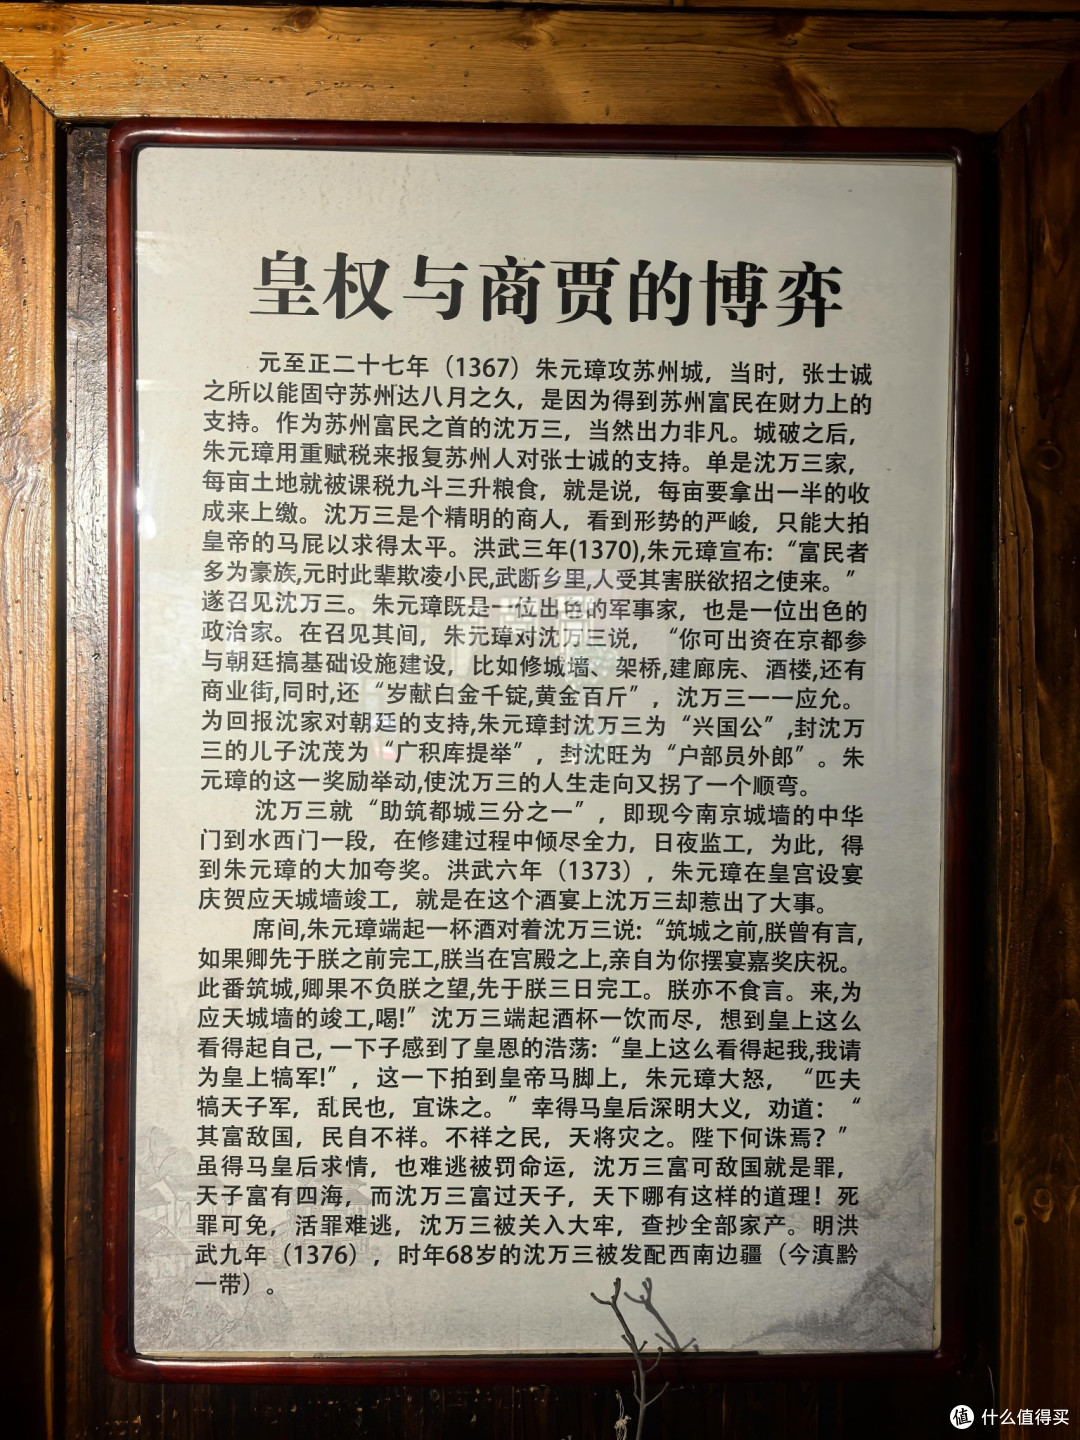 皇权与商贾的博弈
元至正二十七年（1367）朱元璋攻苏州城，当时，张士诚
之所以能固守苏州达八月之久，是因为得到苏州富民在财力上的
支持。作为苏州富民之首的沈万三，当然出力非凡。城破之后，
朱元璋用重赋税来报复苏州人对张士诚的支持。单是沈万三家，
每亩土地就被课税九斗三升粮食，就是说，每亩要拿出一半的收
成来上缴。沈万三是个精明的商人，看到形势的严峻，只能大拍
皇帝的马屁以求得太平。洪武三年(1370),朱元璋宣布:“富民者
多为豪族,元时此辈欺凌小民,武断乡里,人受其害朕欲招之使来。”
遂召见沈万三。朱元璋既是一位出色的军事家，也是一位出色的
政治家。在召见其间，朱元璋对沈万三说，“你可出资在京都参
与朝廷搞基础设施建设，比如修城墙、架桥,建廊庑、酒楼,还有
商业街,同时,还“岁献白金千锭,黄金百斤”，沈万三一一应允。
为回报沈家对朝廷的支持,朱元璋封沈万三为“兴国公”,封沈万
三的儿子沈茂为“广积库提举”，封沈旺为“户部员外郎”。朱
元璋的这一奖励举动,使沈万三的人生走向又拐了一个顺弯。
沈万三就“助筑都城三分之一”，即现今南京城墙的中华
门到水西门一段，在修建过程中倾尽全力，日夜监工，为此，得
到朱元璋的大加夸奖。洪武六年（1373），朱元璋在皇宫设宴
庆贺应天城墙竣工，就是在这个酒宴上沈万三却惹出了大事。
席间,朱元璋端起一杯酒对着沈万三说:“筑城之前,朕曾有言,
如果卿先于朕之前完工,朕当在宫殿之上,亲自为你摆宴嘉奖庆祝。
此番筑城,卿果不负朕之望,先于朕三日完工。朕亦不食言。来,为
应天城墙的竣工,喝!”沈万三端起酒杯一饮而尽，想到皇上这么
看得起自己,一下子感到了皇恩的浩荡:“皇上这么看得起我,我请
为皇上犒军!”，这一下拍到皇帝马脚上，朱元璋大怒，“匹夫
犒天子军，乱民也，宜诛之。”幸得马皇后深明大义，劝道：“
其富敌国，民自不祥。不祥之民，天将灾之。陛下何诛焉？”
虽得马皇后求情，也难逃被罚命运，沈万三富可敌国就是罪，
天子富有四海，而沈万三富过天子，天下哪有这样的道理！死
罪可免，活罪难逃，沈万三被关入大牢，查抄全部家产。明洪
武九年（1376），时年68岁的沈万三被发配西南边疆（今滇黔
一带）。
值 什么值得买